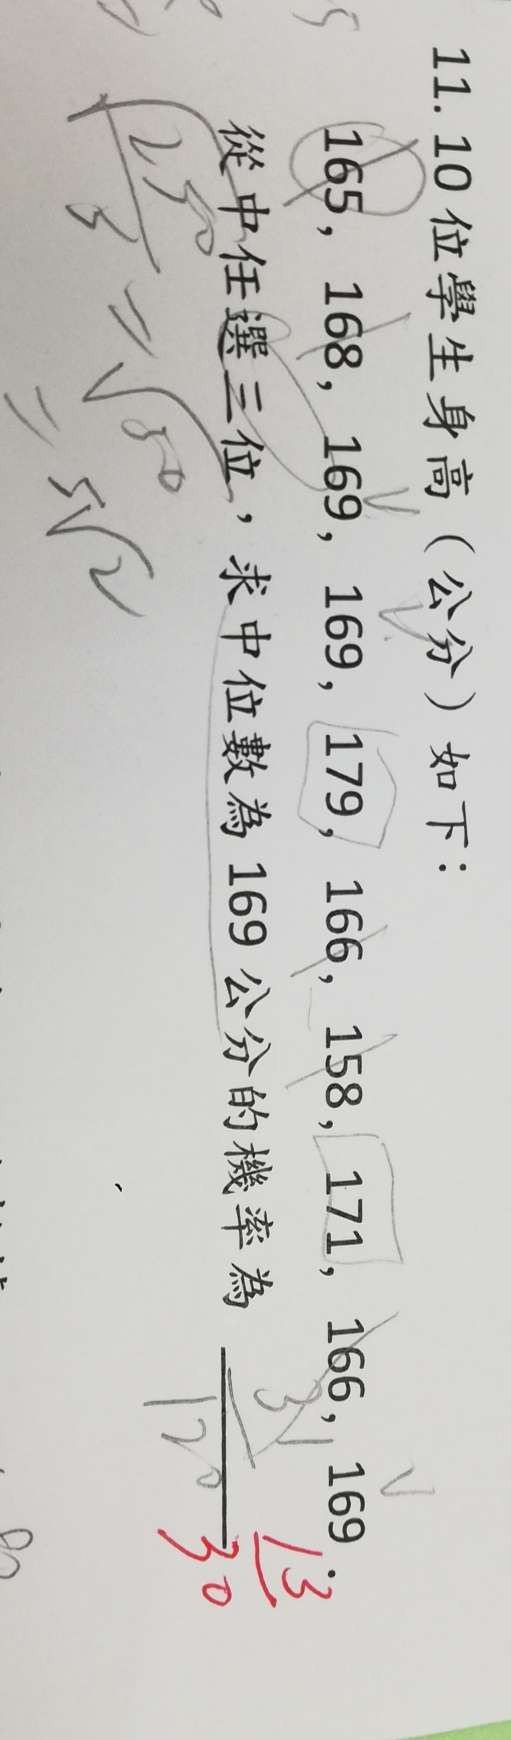 11. 10 位學生身高（公分）如下：
165, 168, 169, 169, 179, 166, 158, 171, 166, 169.
從中任選三位，求中位數為 169 公分的機率為
31
120
13
30
√250
5
= √50
= 5√2